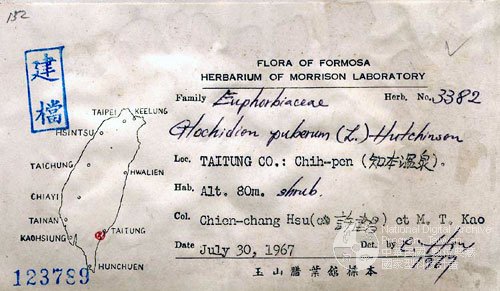 132
建檔
FLORA OF FORMOSA
HERBARIUM OF MORRISON LABORATORY
Family Euphorbiaceae Herb. No. 3382
Glochidion puberum (L.) Hutchinson
Loc. TAITUNG CO.: Chih-pen (知本溫泉).
Hab. Alt. 80m. shrub.
Col. Chien-chang Hsu et M. T. Kao
Date July 30, 1967 Det. by
1967
玉山腊葉館標本
TAIPEI
KEELUNG
HSINTSU
TAICHUNG
HWALIEN
CHIAYI
TAINAN
TAITUNG
KAOHSIUNG
HUNCHUEN
123789
National Digital Archive